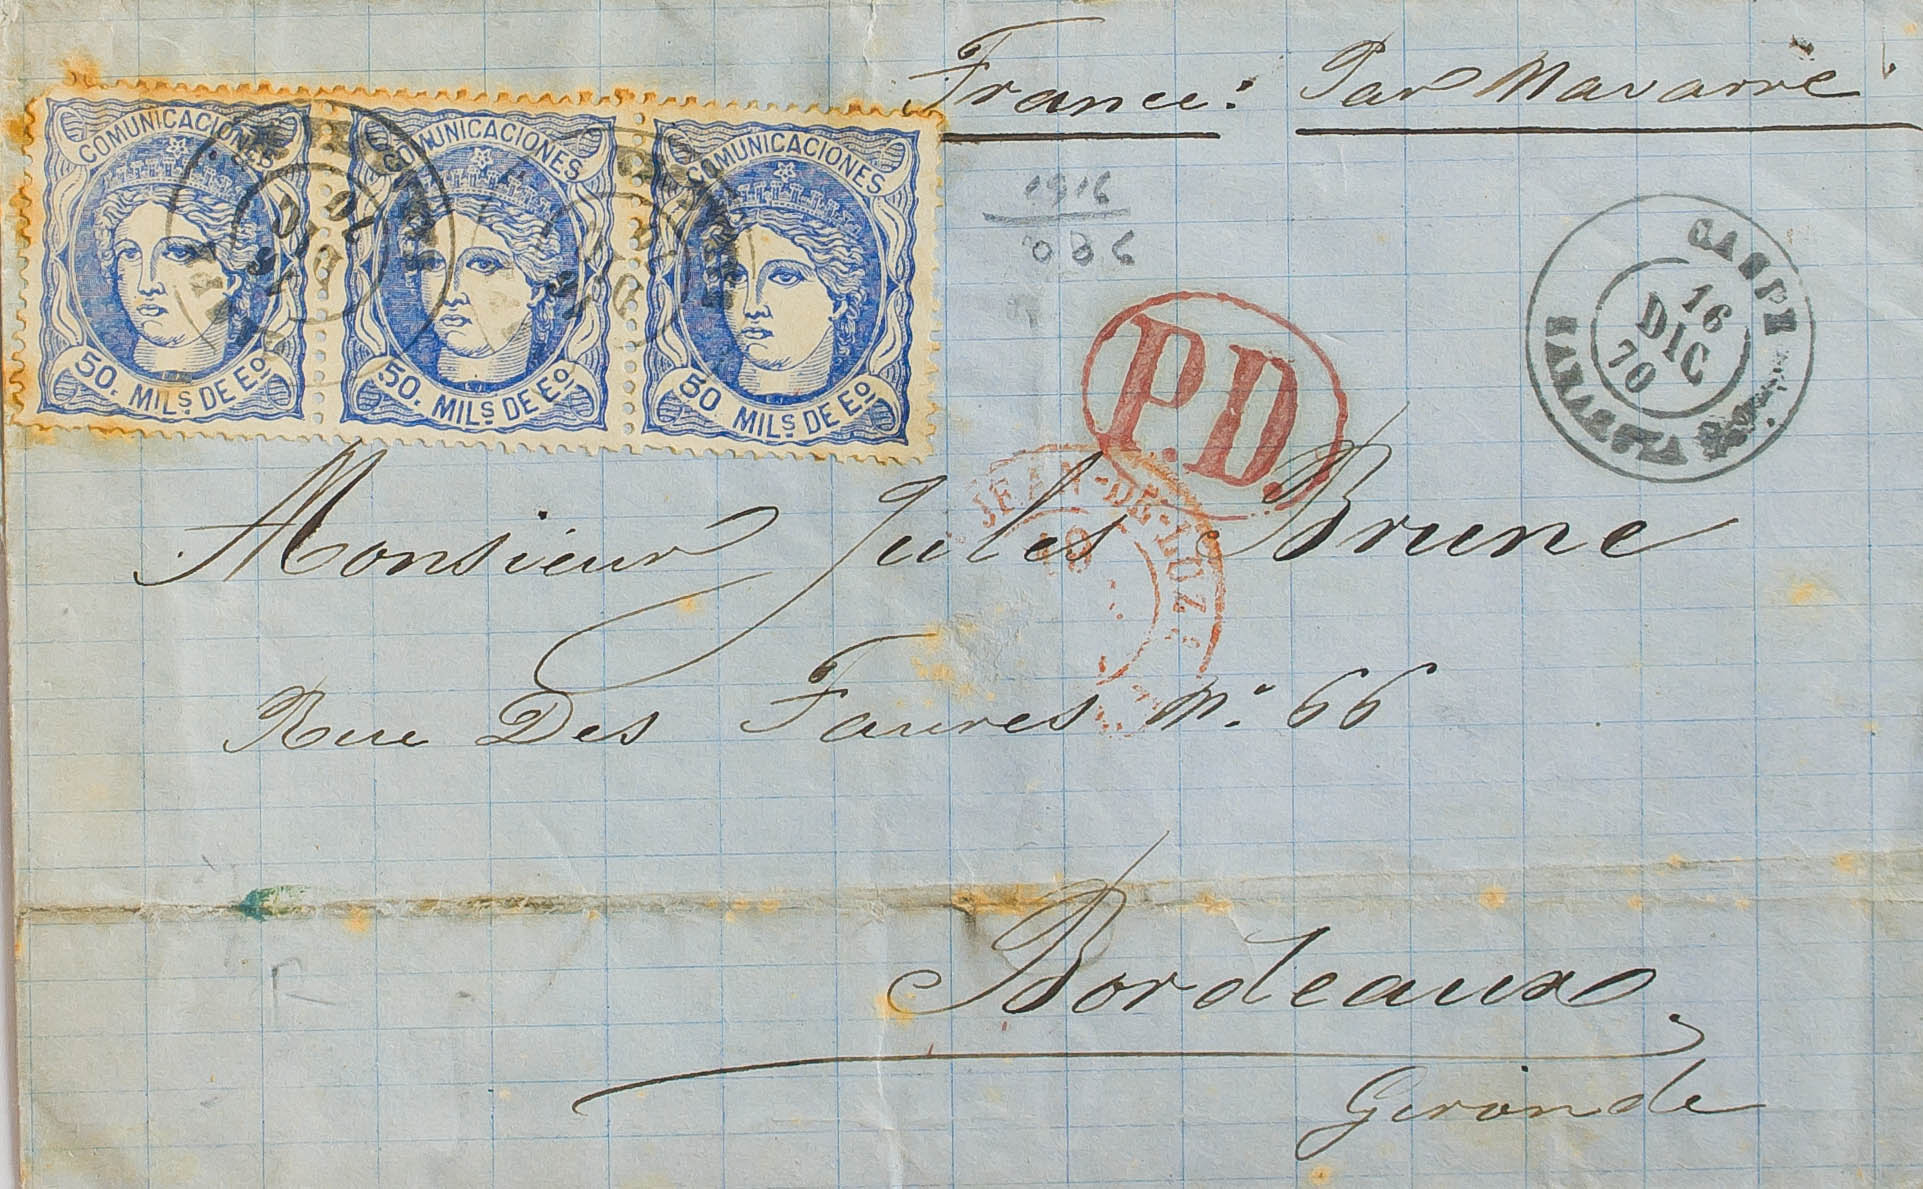 France: Par Navarre
COMUNICACIONES
50. MILS DE Eº
COMUNICACIONES
50. MILS DE Eº
COMUNICACIONES
50 MILS DE Eº
1916
086
CASPE
16
DIC
70
ZARAGOZA
P.D.
JEAN-DE-LUZ
Monsieur Jules Brune
Rue Des Faures Nº 66
Bordeaux
Gironde